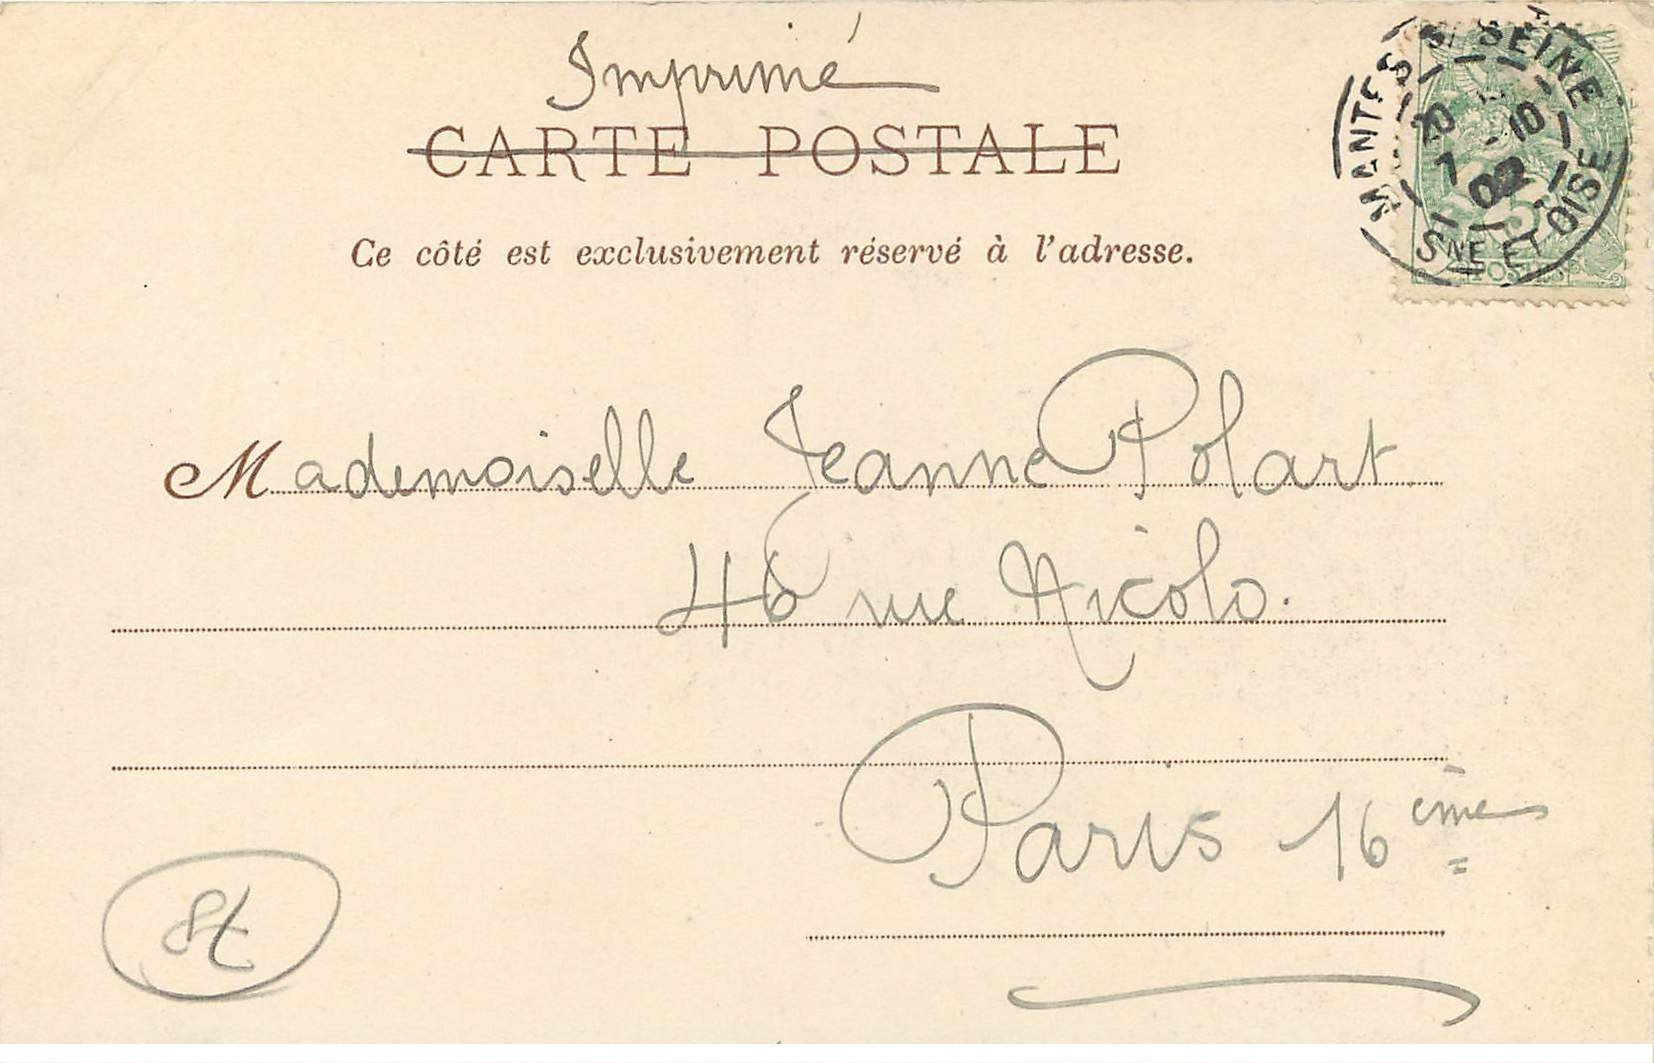 Imprimé
CARTE POSTALE
Ce côté est exclusivement réservé à l'adresse.
MANTES S/ SEINE
20 10
7
02
SNE ET OISE
5
POSTES
Mademoiselle Jeanne Polart
46 rue Nicolo.
Paris 16ème